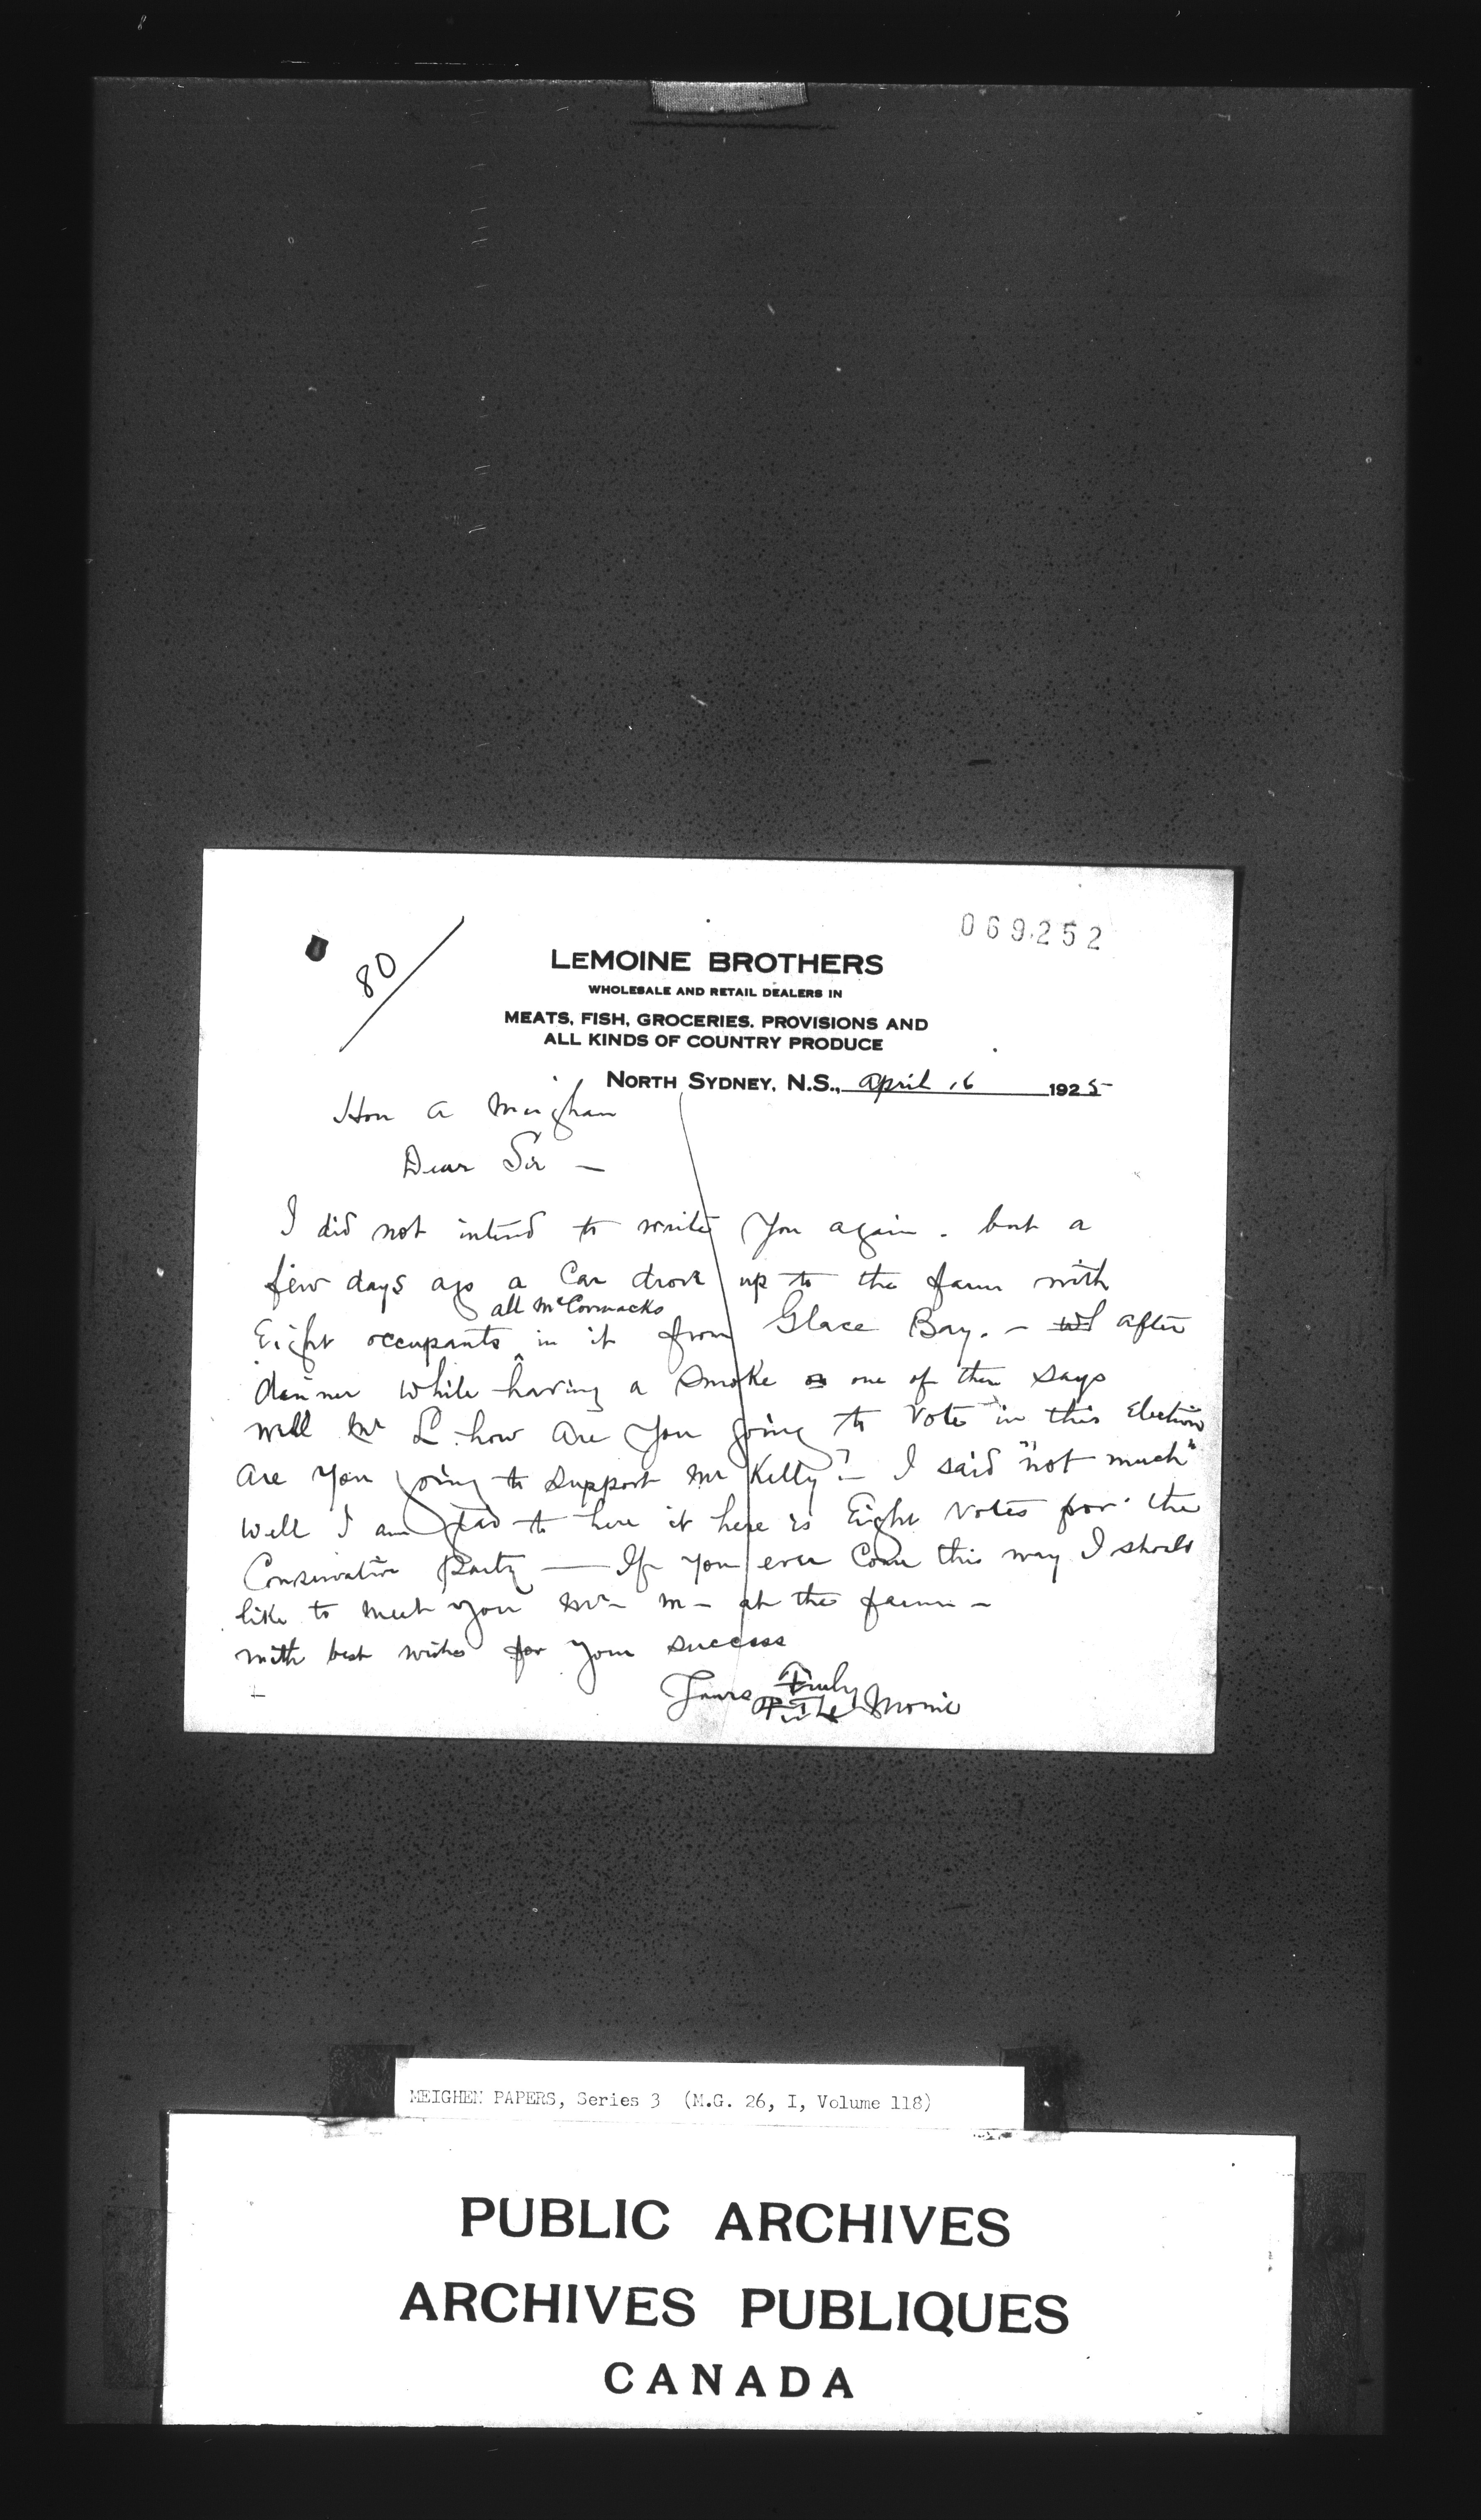 069252
80
LEMOINE BROTHERS
WHOLESALE AND RETAIL DEALERS IN
MEATS, FISH, GROCERIES. PROVISIONS AND
ALL KINDS OF COUNTRY PRODUCE
NORTH SYDNEY, N.S., april 16 1925
Hon a Meighan
Dear Sir —
I did not intend to write you again. but a
few days ago a Car drove up to the farm with
all McCormacks
Eight occupants in it from Glace Bay. — after
dinner while having a smoke one of them says
well Mr L. how are you going to vote in this Election
are you going to support Mr Kelly? — I said "not much"
well I am glad to here it here is Eight votes for the
Conservative Party — If you ever come this way I should
like to meet you Mr — M — at the farm —
with best wishes for your success
Yours Truly
Le Moine
MEIGHEN PAPERS, Series 3 (M.G. 26, I, Volume 118)
PUBLIC ARCHIVES
ARCHIVES PUBLIQUES
CANADA